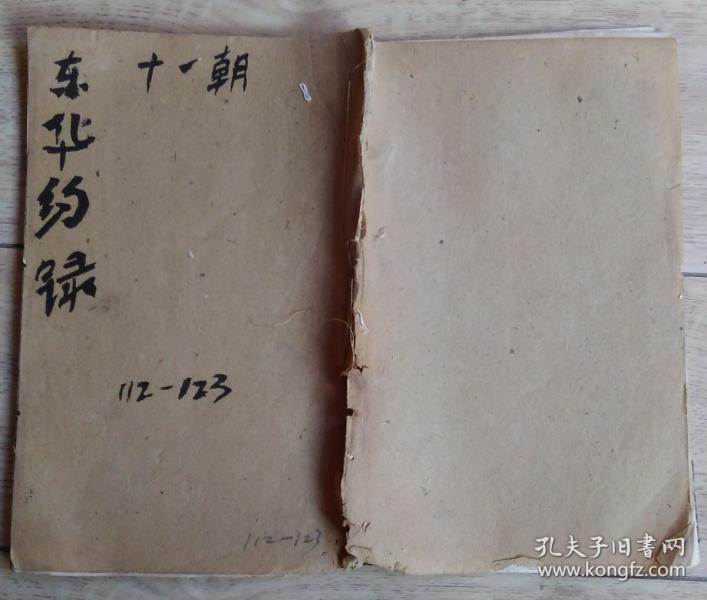 十一朝
东华约录
112-123
112-123
孔夫子旧书网
www.kongfz.com